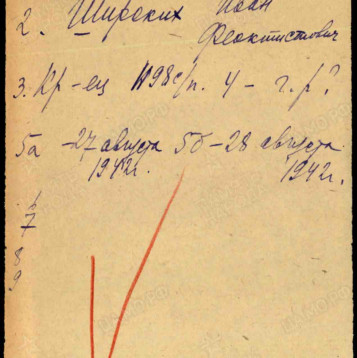 2. Ширских Иван
Феоктистович
3. Кр-ец 1198 с/п. 4 - г. р?
5а -27 августа 5б -28 августа
1942г. 1942г.
6
7
8
9